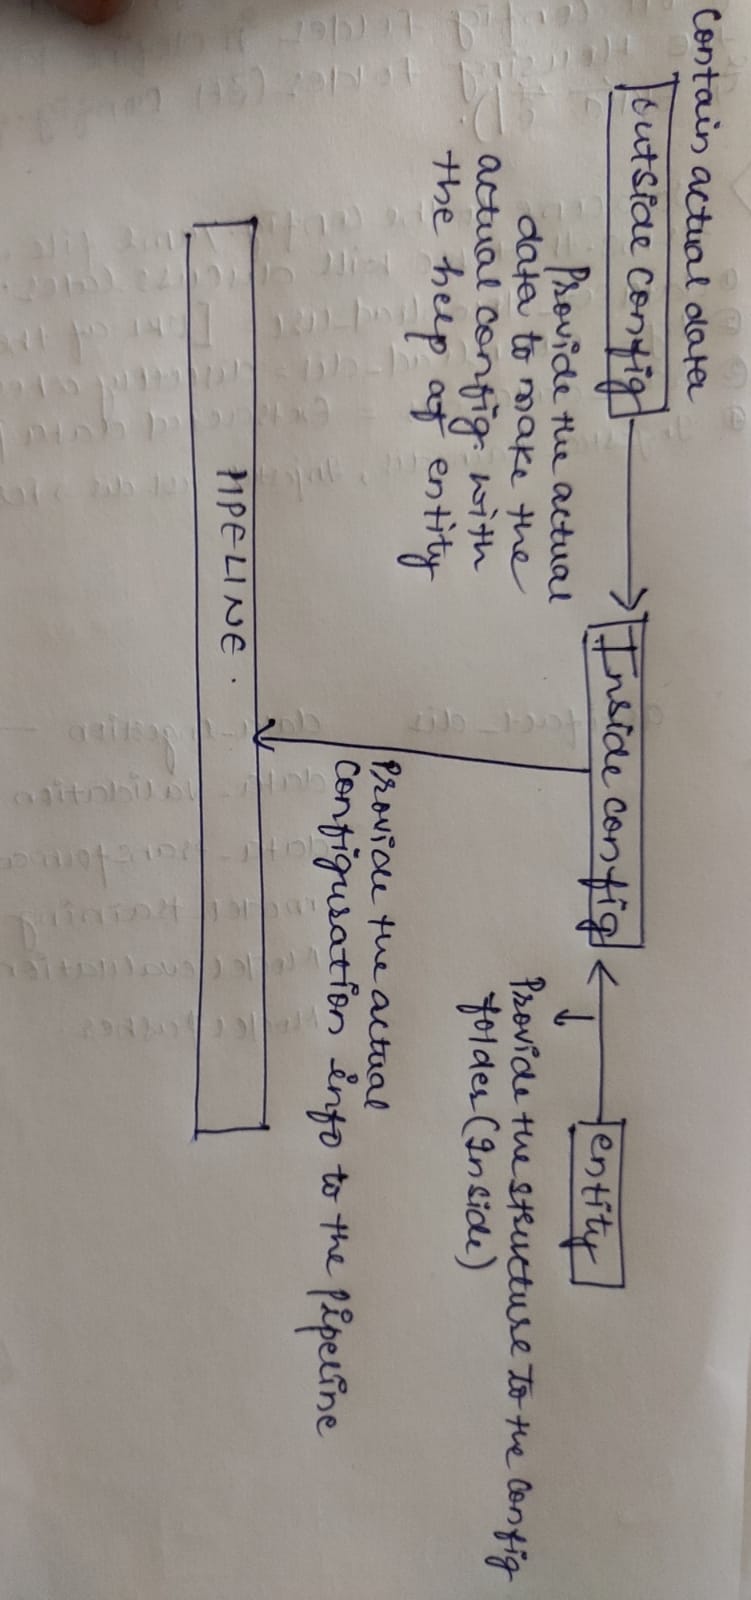 Contain actual data
Outside config
Inside config
entity
Provide the actual
data to make the
actual config. with
the help of entity
Provide the structure to the config
folder (Inside)
Provide the actual
configuration info to the pipeline
PIPELINE.